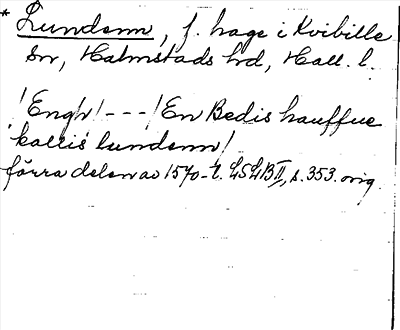 * Lundenn, f. hage i Kvibille
sn, Halmstads hd, Hall. l.
/Engh/---/En Bedis hauffue
kallis lundenn/
förra delen av 1570-t. LSLB II, s. 353. orig.